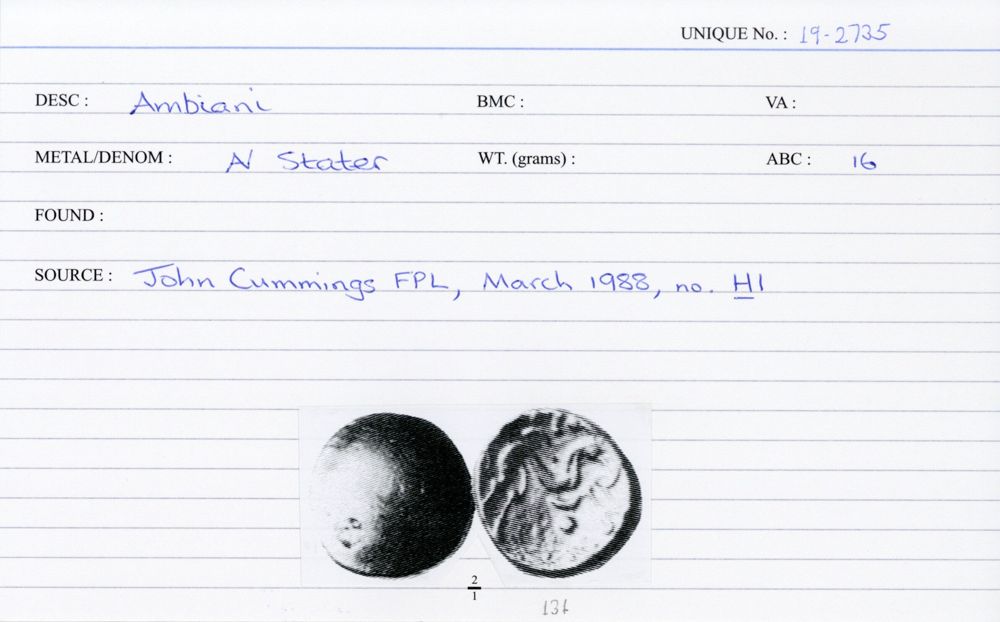 UNIQUE No. : 19-2735
DESC : Ambiani BMC : VA :
METAL/DENOM : N Stater WT. (grams) : ABC : 16
FOUND :
SOURCE : John Cummings FPL, March 1988, no. H1
2
1